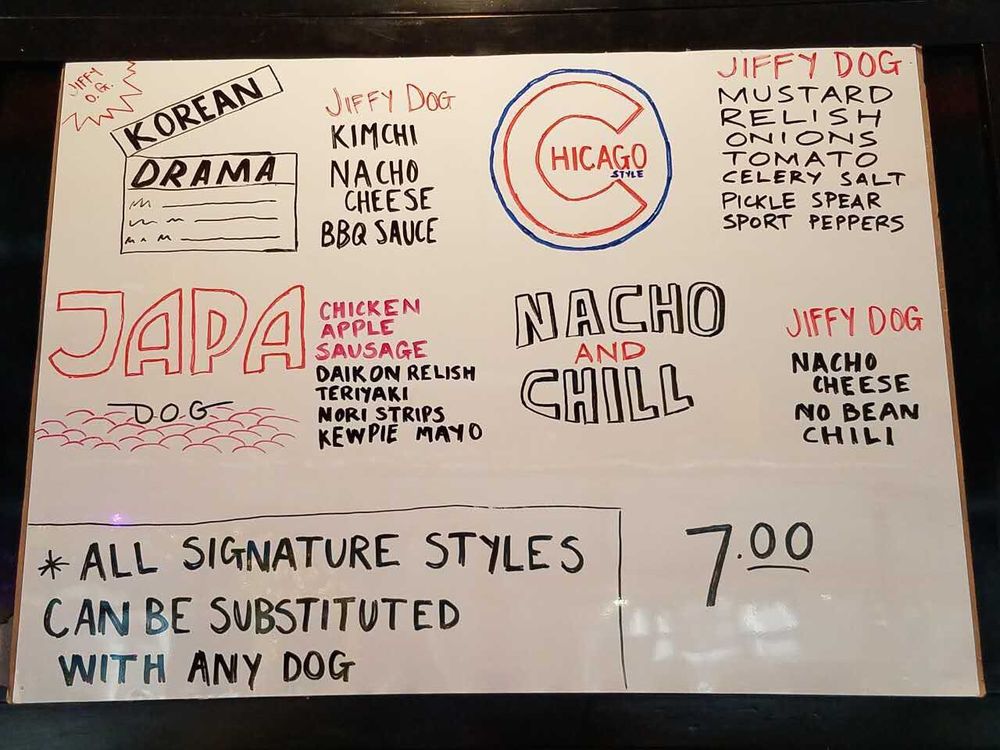 JIFFY
O.G.
KOREAN
DRAMA
JIFFY DOG
KIMCHI
NACHO
CHEESE
BBQ SAUCE
CHICAGO
STYLE
JIFFY DOG
MUSTARD
RELISH
ONIONS
TOMATO
CELERY SALT
PICKLE SPEAR
SPORT PEPPERS
JAPA
DOG
CHICKEN
APPLE
SAUSAGE
DAIKON RELISH
TERIYAKI
NORI STRIPS
KEWPIE MAYO
NACHO
AND
CHILL
JIFFY DOG
NACHO
CHEESE
NO BEAN
CHILI
* ALL SIGNATURE STYLES
CAN BE SUBSTITUTED
WITH ANY DOG
7.00